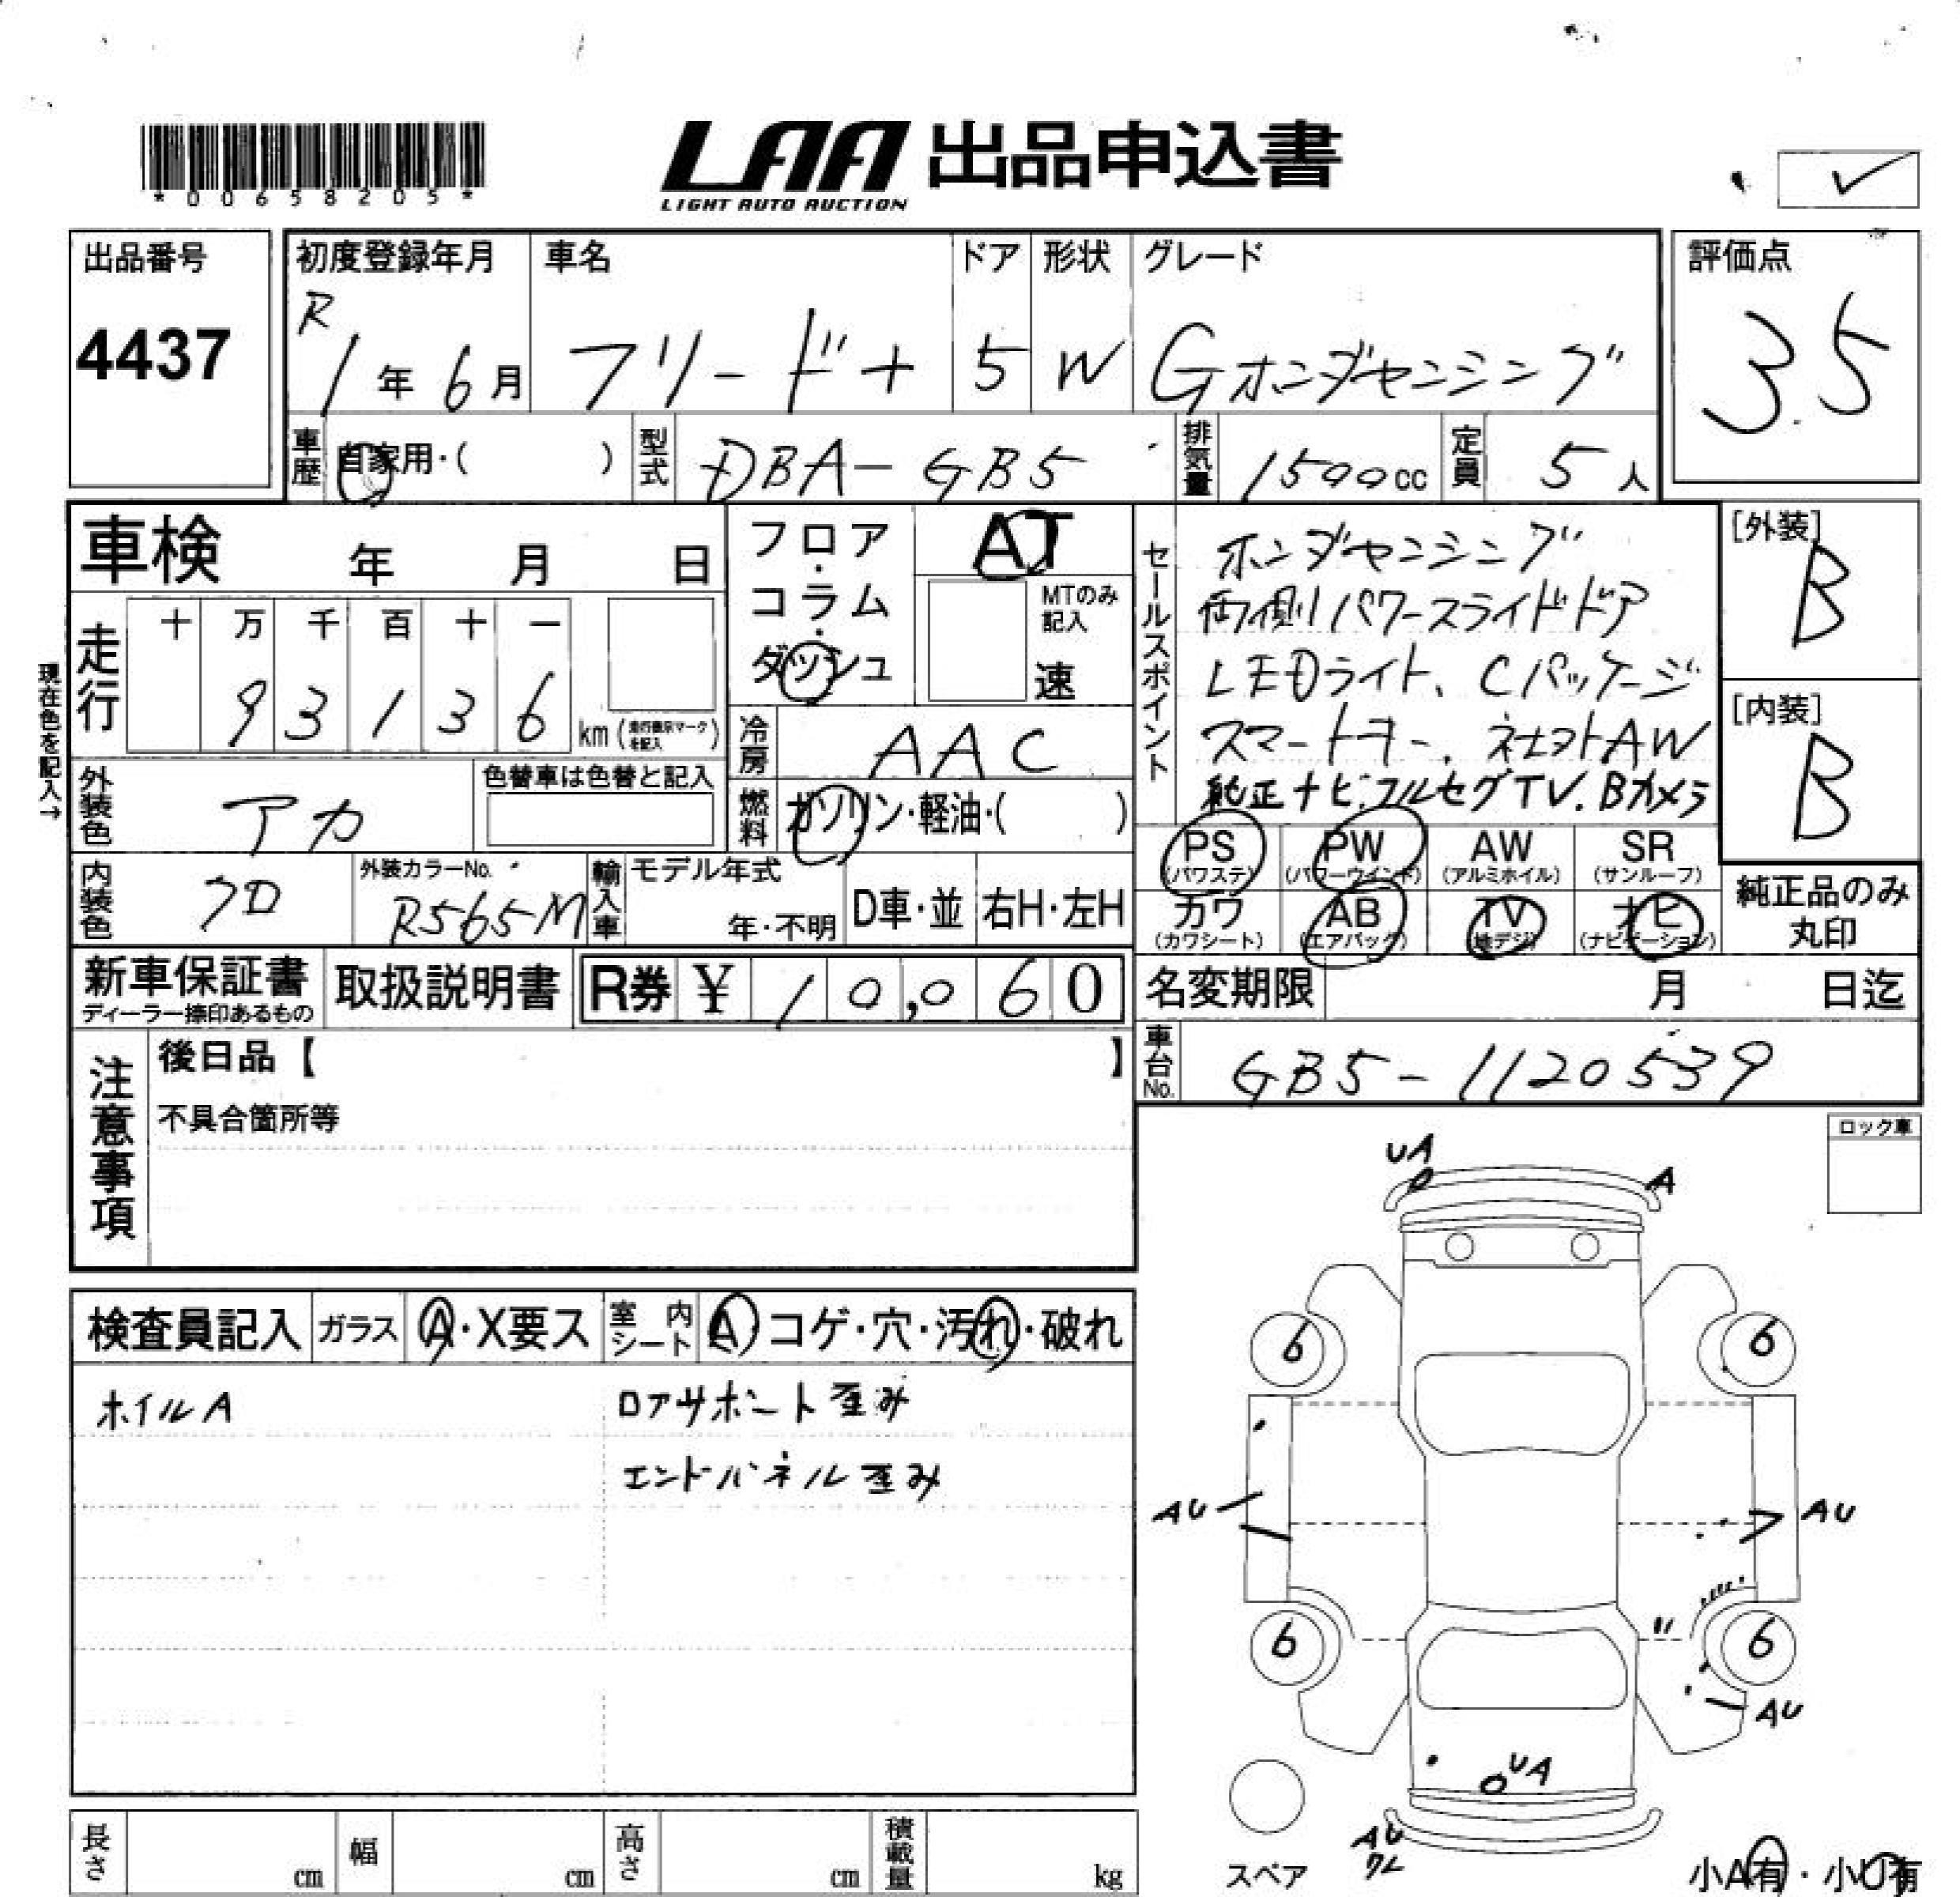 *00658205*
LAA 出品申込書
LIGHT AUTO AUCTION
出品番号
4437
初度登録年月
R
1年6月
車名
フリード+
ドア
5
形状
W
グレード
Gホンダセンシング
評価点
3.5
車歴
自家用・( )
型式
DBA-GB5
排気量
1500cc
定員
5人
車検 年 月 日
フロア・コラム・ダッシュ
AT
MTのみ記入
速
セールスポイント
ホンダセンシング
両側パワースライドドア
LEDライト、Cパッケージ
スマートキー、社外AW
純正ナビ.フルセグTV.Bカメラ
[外装]
B
[内装]
B
現在色を記入→
走行
十 万 千 百 十 一
9 3 1 3 6
km (走行表示マークを記入)
冷房
AAC
外装色
アカ
色替車は色替と記入
燃料
ガソリン・軽油・( )
PS
(パワステ)
PW
(パワーウインド)
AW
(アルミホイル)
SR
(サンルーフ)
カワ
(カワシート)
AB
(エアバッグ)
TV
(地デジ)
ナビ
(ナビゲーション)
純正品のみ
丸印
内装色
クロ
外装カラーNo.
R565M
輸入車
モデル年式
年・不明
D車・並
右H・左H
新車保証書
ディーラー捺印あるもの
取扱説明書
R券 ¥ 10,060
名変期限 月 日迄
車台No.
GB5-1120539
注意事項
後日品【 】
不具合箇所等
ロック車
検査員記入
ガラス
A・X要ス
室内シート
A・コゲ・穴・汚れ・破れ
ホイルA
ロアサポート歪み
エンドパネル歪み
UA
A
6
6
AU
AU
6
6
AU
UA
AU
ワレ
スペア
小A有・小U有
長さ
cm
幅
cm
高さ
cm
積載量
kg